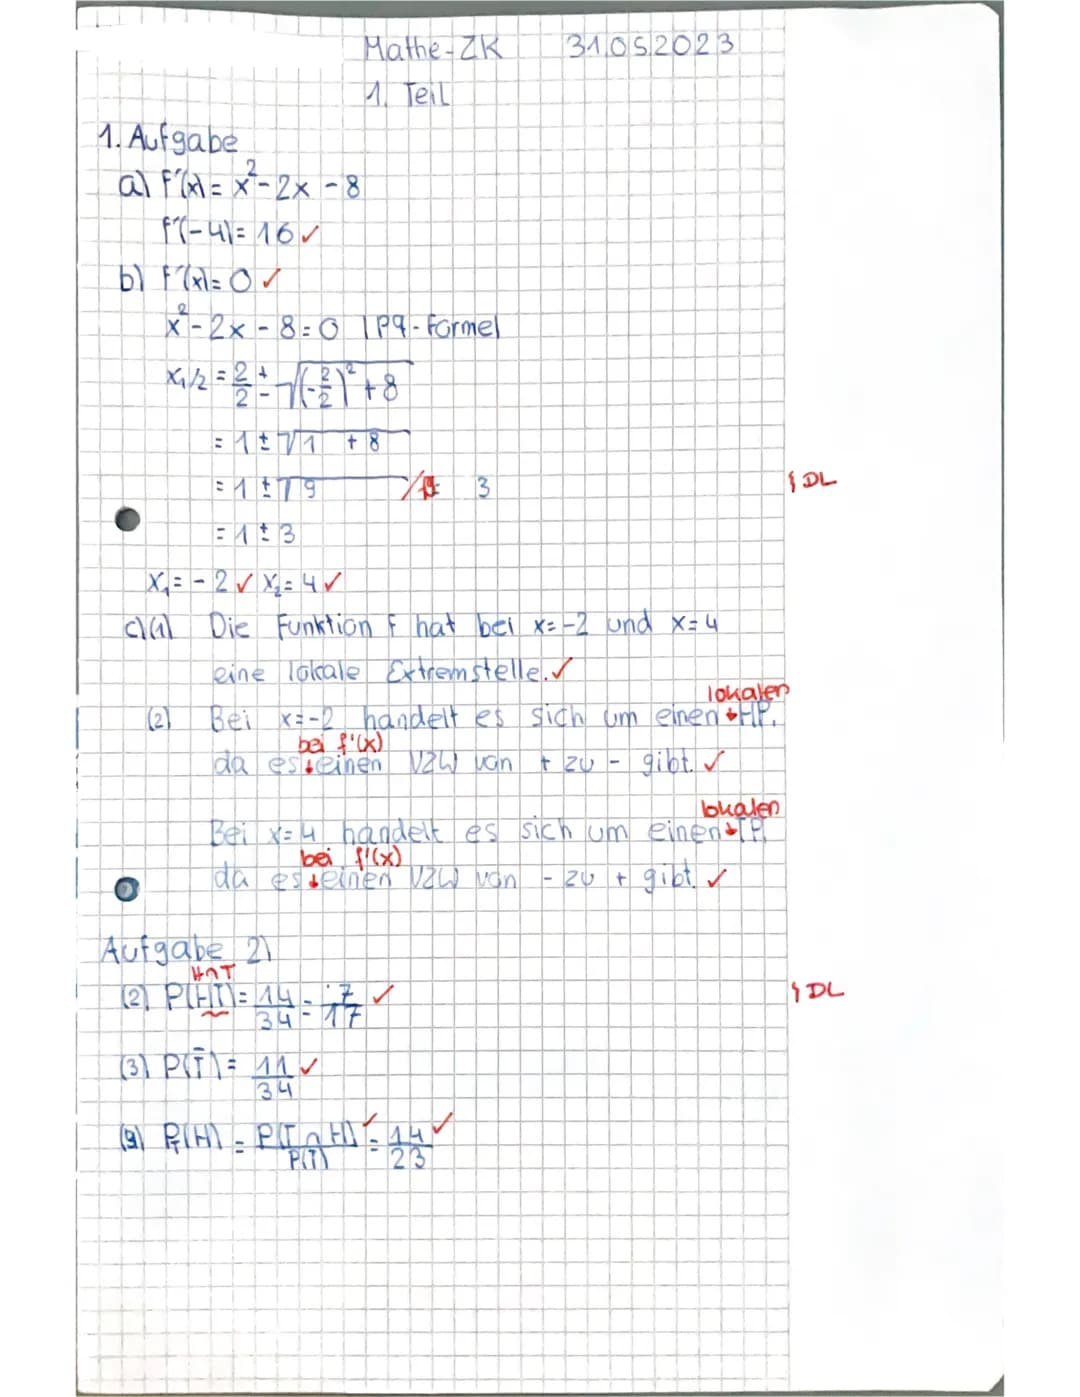 Mathe-ZK 31.05.2023
1. Teil
1. Aufgabe
a) f'(x) = x² - 2x - 8
f'(-4) = 16 ✓
b) f'(x) = 0 ✓
x² - 2x - 8 = 0 | PQ-Formel
x₁/₂ = 2/2 ± √((-2/2)² + 8)
= 1 ± √1 + 8
= 1 ± √9 3 { DL
= 1 ± 3
x₁ = -2 ✓ x₂ = 4 ✓
c)(1) Die Funktion f hat bei x=-2 und x=4
eine lokale Extremstelle. ✓
lokalen
(2) Bei x=-2 handelt es sich um einen HP,
bei f'(x)
da es einen VZW von + zu - gibt. ✓
lokalen
Bei x=4 handelt es sich um einen TP,
bei f'(x)
da es einen VZW von - zu + gibt. ✓
Aufgabe 2)
H∩T
(2) P(HT) = 14/34 = 7/17 ✓ { DL
(3) P(T̄) = 11/34 ✓
P_T(H) = P(T ∩ H)/P(T) ✓ = 14/23 ✓